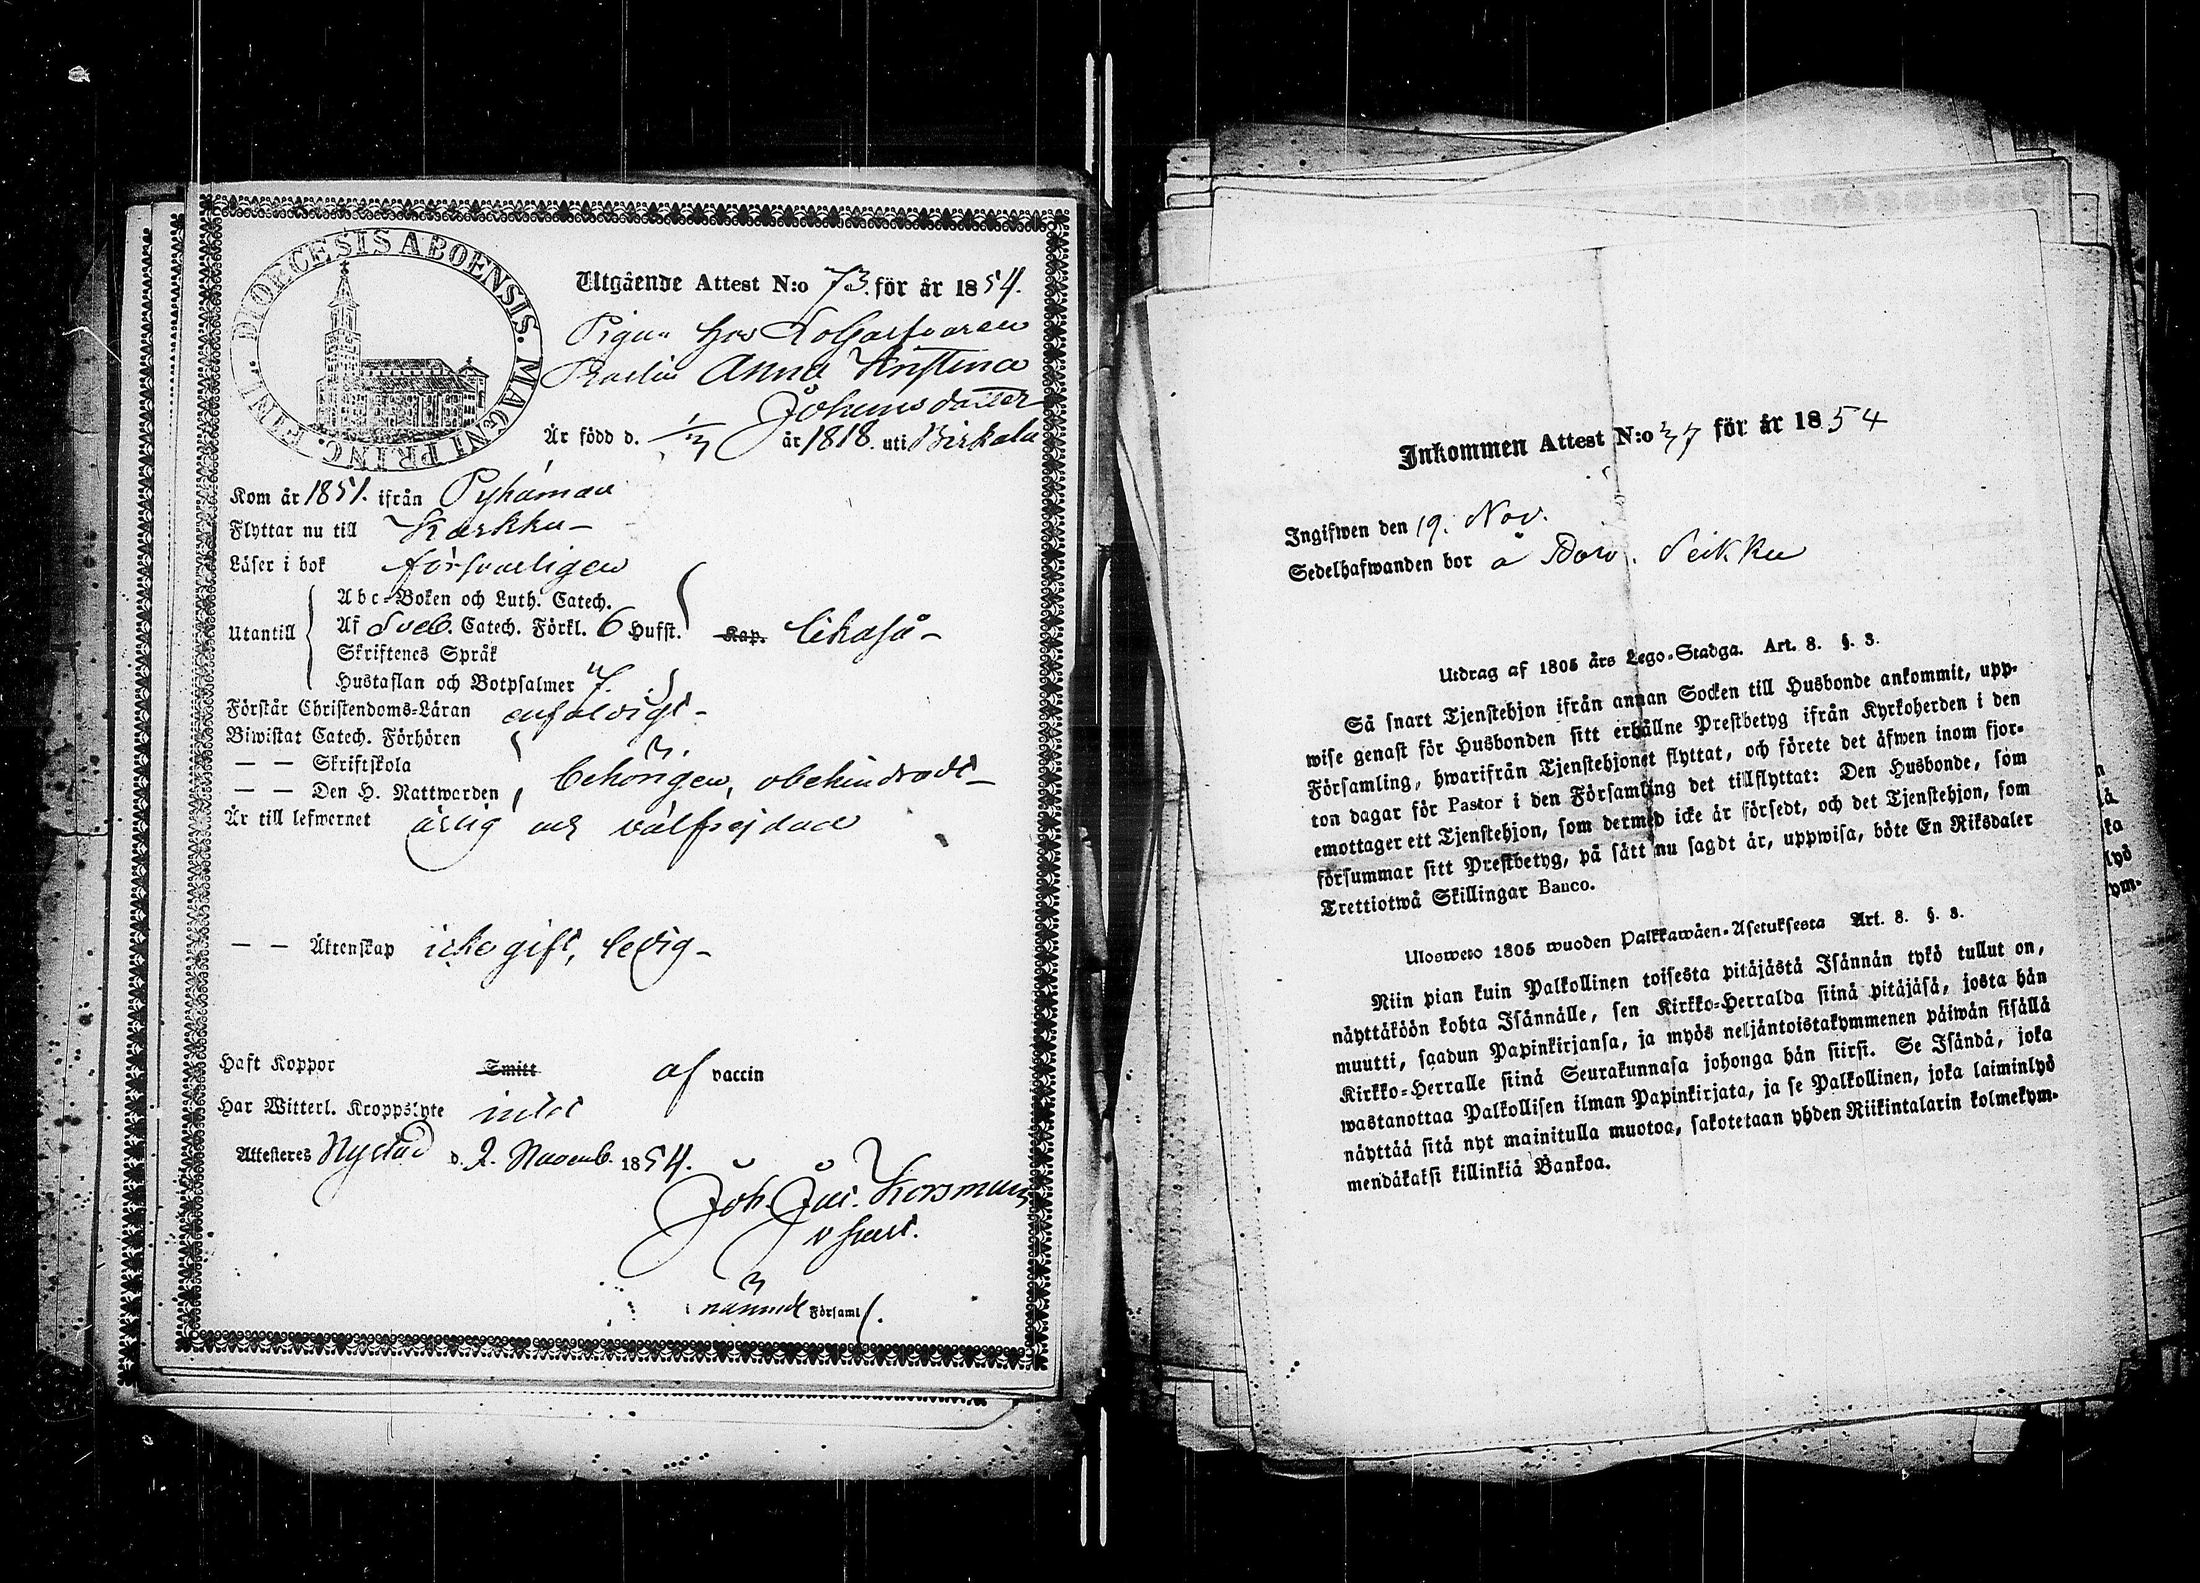 DIOECESIS ABOENSIS. MAGNI PRINC. FINL.
Utgående Attest N:o 73. för år 1854.
Pigan hos
Anna Kristina
Johansdotter
Är född d. 1/3 år 1818. uti Birkala
Kom år 1851. ifrån Pyhämaa
Flyttar nu till Karkku -
Läser i bok försvarligen
Utantill
Abc-Boken och Luth. Catech.
Af Sveb. Catech. Förkl. 6 Hufst. Kap. likaså -
Skriftenes Språk
Hustaflan och Botpsalmer 7.
Förstår Christendoms-Läran enfaldigt -
Biwistat Catech. Förhören
— — Skriftskola
— — Den H. Nattwarden behörigen, obehindradt -
Är till lefwernet ärlig och välfrejdad
— — Äktenskap icke gift, ledig -
Haft Koppor Smitt af vaccin
Har Witterl. Kroppslyte intet
Attesteres Nystad d. 2. Novemb. 1854.
Joh. Jac. Korsman
v past.
i nämnde Församl.
Inkommen Attest N:o 37 för år 1854
Ingifwen den 19. Nov.
Sedelhafwanden bor å Seikku
Utdrag af 1805 års Lego-Stadga. Art. 8. §. 3.
Så snart Tjenstehjon ifrån annan Socken till Husbonde ankommit, upp-
wise genast för Husbonden sitt erhållne Prestbetyg ifrån Kyrkoherden i den
Församling, hwarifrån Tjenstehjonet flyttat, och förete det äfwen inom fjor-
ton dagar för Pastor i den Församling det tillflyttat: Den Husbonde, som
emottager ett Tjenstehjon, som dermed icke är försedt, och det Tjenstehjon, som
försummar sitt Prestbetyg, på sätt nu sagdt är, uppwisa, böte En Riksdaler
Trettiotwå Skillingar Banco.
Ulosweto 1805 wuoden Palkkawäen-Asetuksesta Art. 8. §. 3.
Niin pian kuin Palkollinen toisesta pitäjästä Isännän tykö tullut on,
näyttäköön kohta Isännälle, sen Kirkko-Herralda siinä pitäjäsä, josta hän
muutti, saadun Papinkirjansa, ja myös neljäntoistakymmenen päiwän sisällä
Kirkko-Herralle siinä Seurakunnasa johonga hän siirsi. Se Isändä, joka
wastanottaa Palkollisen ilman Papinkirjata, ja se Palkollinen, joka laiminlyö
näyttää sitä nyt mainitulla muotoa, sakotetaan yhden Riikintalarin kolmekym-
mendäkaksi killinkiä Bankoa.